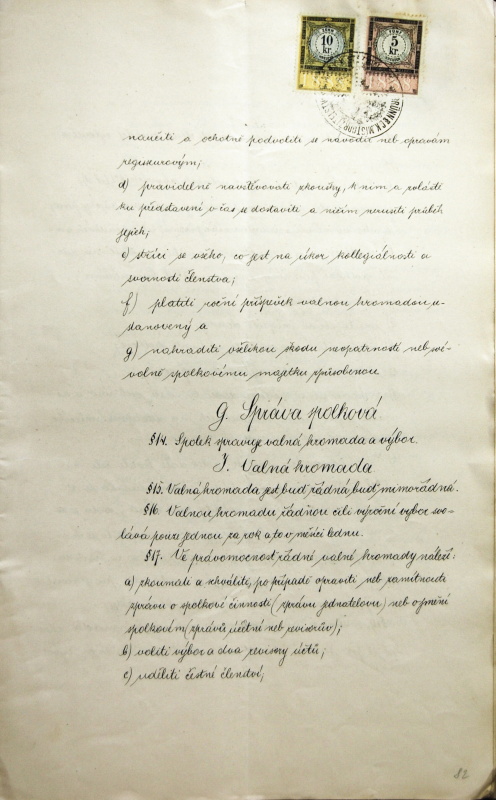 10
kr.
5
kr.
naučiti a ochotně podvoliti se návodu neb opravám
regisseurovým;
d) pravidelně navštěvovati zkoušky, k nim a zvláště
ku představení v čas se dostaviti a ničím nerušiti průběh
jejich;
e) stříci se všeho, co jest na úkor kollegiálnosti a
svornosti členstva;
f) platiti roční příspěvek valnou hromadou u-
stanovený a
g) nahraditi všelikou škodu neopatrností neb své-
volně spolkovému majetku způsobenou.
G. Správa spolková
§14. Spolek spravuje valná hromada a výbor.
I. Valná hromada
§15. Valná hromada jest buď řádná, buď mimořádná.
§16. Valnou hromadu řádnou čili výroční výbor svo-
lává pouze jednou za rok a to v měsíci lednu.
§17. Ve právomocnost řádné valné hromady náleží:
a) zkoumati a schváliti, po případě opraviti neb zamítnouti
zprávu o spolkové činnosti (zprávu jednatelovu) neb o jmění
spolkovém (zprávu účetní neb revisorův);
b) voliti výbor a dva revisory účtů;
c) uděliti čestné členství;
82